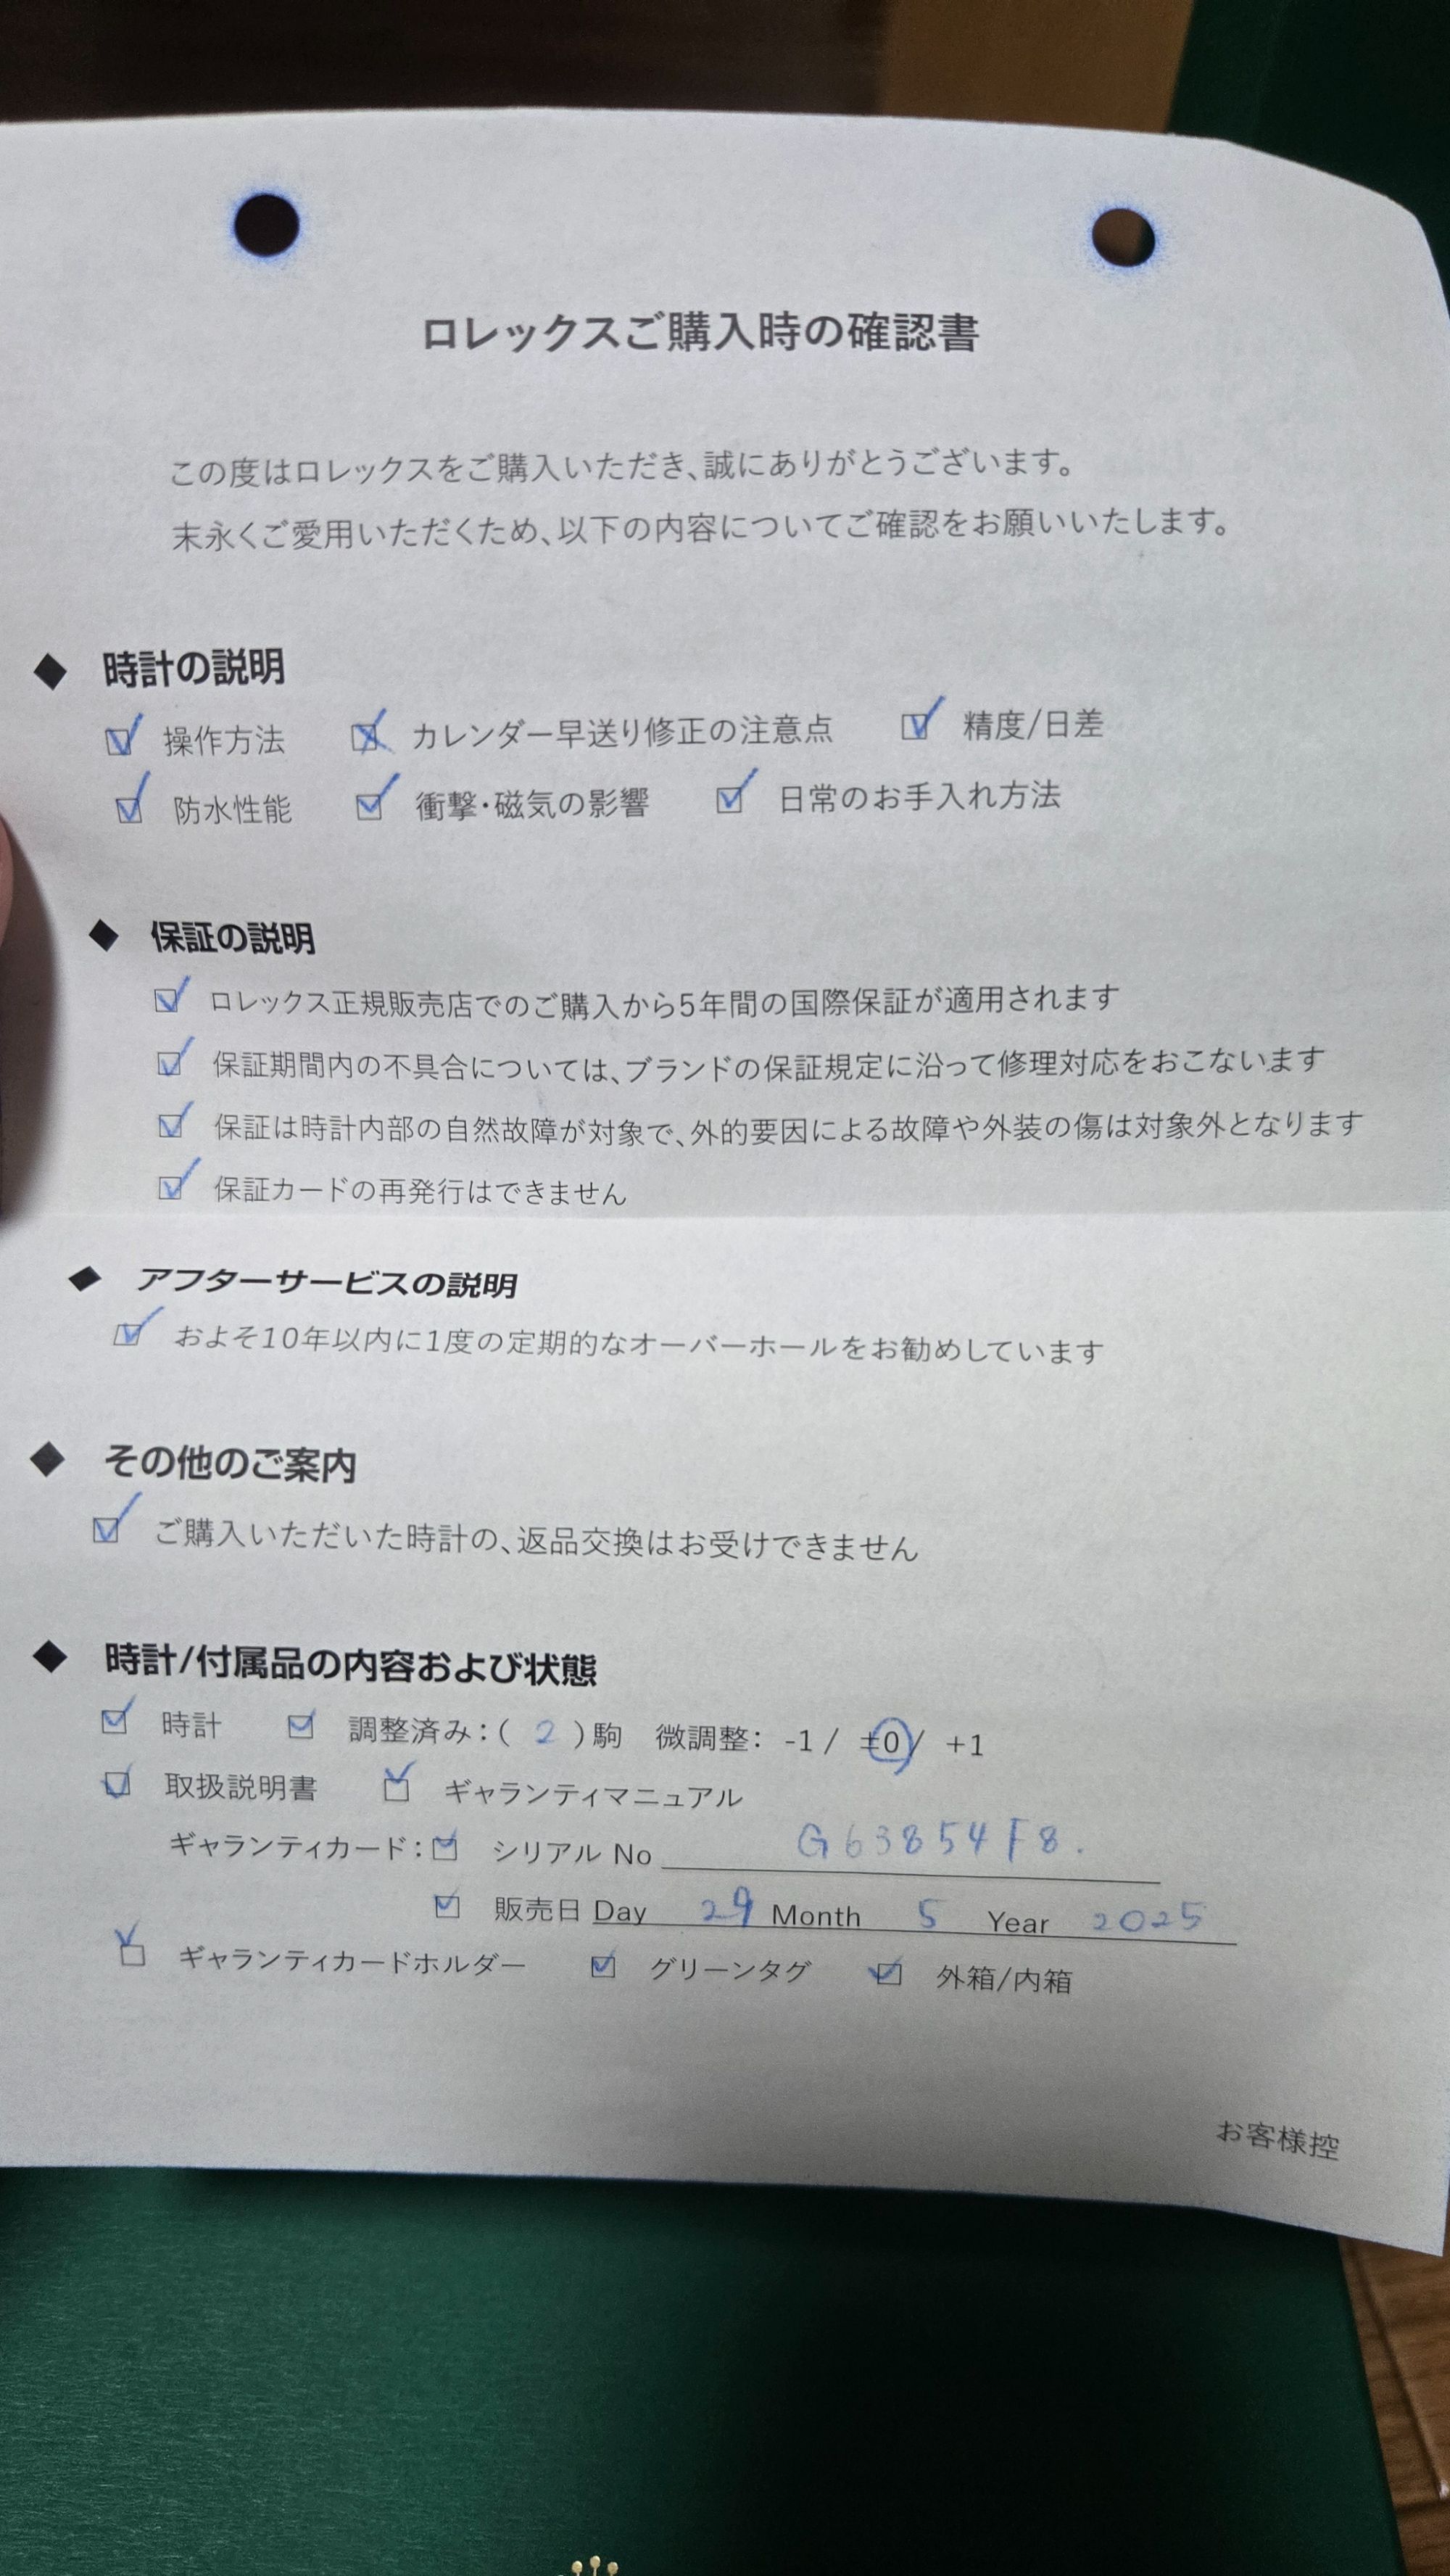 ロレックスご購入時の確認書
この度はロレックスをご購入いただき、誠にありがとうございます。
末永くご愛用いただくため、以下の内容についてご確認をお願いいたします。
◆ 時計の説明
☑ 操作方法 ☒ カレンダー早送り修正の注意点 ☑ 精度/日差
☑ 防水性能 ☑ 衝撃・磁気の影響 ☑ 日常のお手入れ方法
◆ 保証の説明
☑ ロレックス正規販売店でのご購入から5年間の国際保証が適用されます
☑ 保証期間内の不具合については、ブランドの保証規定に沿って修理対応をおこないます
☑ 保証は時計内部の自然故障が対象で、外的要因による故障や外装の傷は対象外となります
☑ 保証カードの再発行はできません
◆ アフターサービスの説明
☑ およそ10年以内に1度の定期的なオーバーホールをお勧めしています
◆ その他のご案内
☑ ご購入いただいた時計の、返品交換はお受けできません
◆ 時計/付属品の内容および状態
☑ 時計 ☑ 調整済み：( 2 )駒 微調整： -1 / ±0 / +1
☑ 取扱説明書 ☑ ギャランティマニュアル
ギャランティカード：☑ シリアル No G63854F8.
☑ 販売日 Day 29 Month 5 Year 2025
☑ ギャランティカードホルダー ☑ グリーンタグ ☑ 外箱/内箱
お客様控